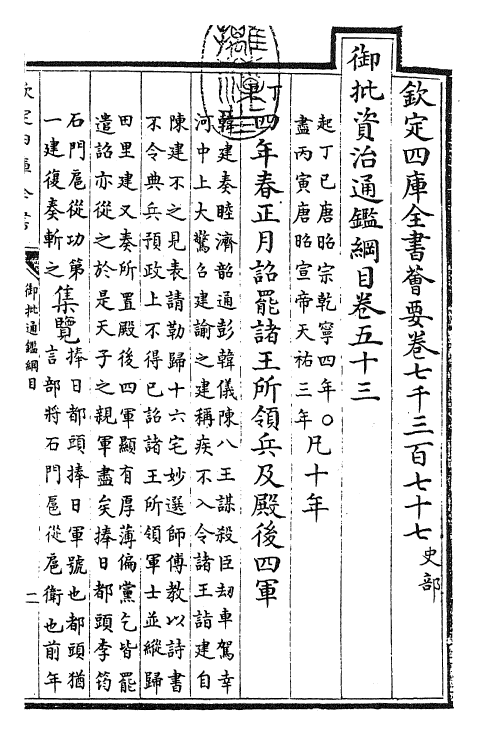 欽定四庫全書薈要卷七千三百七十七 史部
御批資治通鑑綱目卷五十三
起丁巳唐昭宗乾寧四年〇
盡丙寅唐昭宣帝天祐三年
凡十年
丁
四年春正月詔罷諸王所領兵及殿後四軍
韓建奏睦濟韶通彭韓儀陳八王謀殺臣刼車駕幸
河中上大驚召建諭之建稱疾不入令諸王詣建自
陳建不之見表請勒歸十六宅妙選師傅教以詩書
不令典兵預政上不得已詔諸王所領軍士並縱歸
田里建又奏所置殿後四軍顯有厚薄偏黨乞皆罷
遣詔亦從之於是天子之親軍盡矣捧日都頭李筠
石門扈從功第
一建復奏斬之
集覽
捧日都頭捧日軍號也都頭猶
言部將石門扈從扈衛也前年
欽定四庫全書
御批通鑑綱目
二